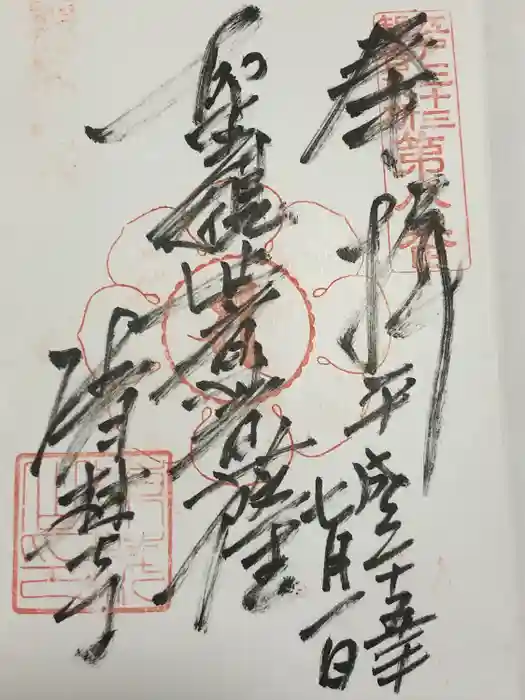 江戸三十三
観音札所
第八番
奉拝
平成二十五年
七月一日
聖観世音菩薩
清林寺